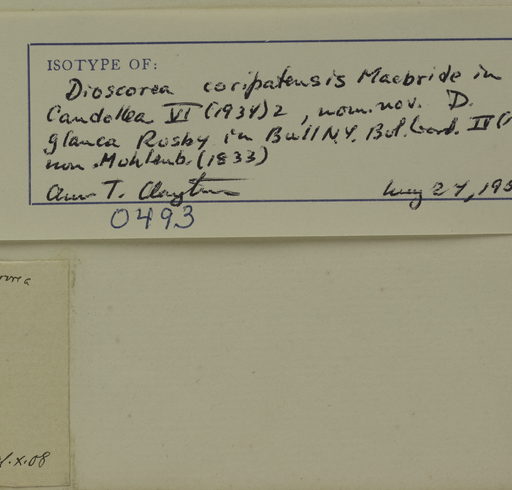 ISOTYPE OF:
Dioscorea coripatensis Macbride in
Candollea VI (1934) 2, nom. nov. D.
glauca Rusby in Bull N.Y. Bot. Gard. IV (1
non Muhlenb. (1833)
Ann T. Clayton 27, 195
0493
.X.08